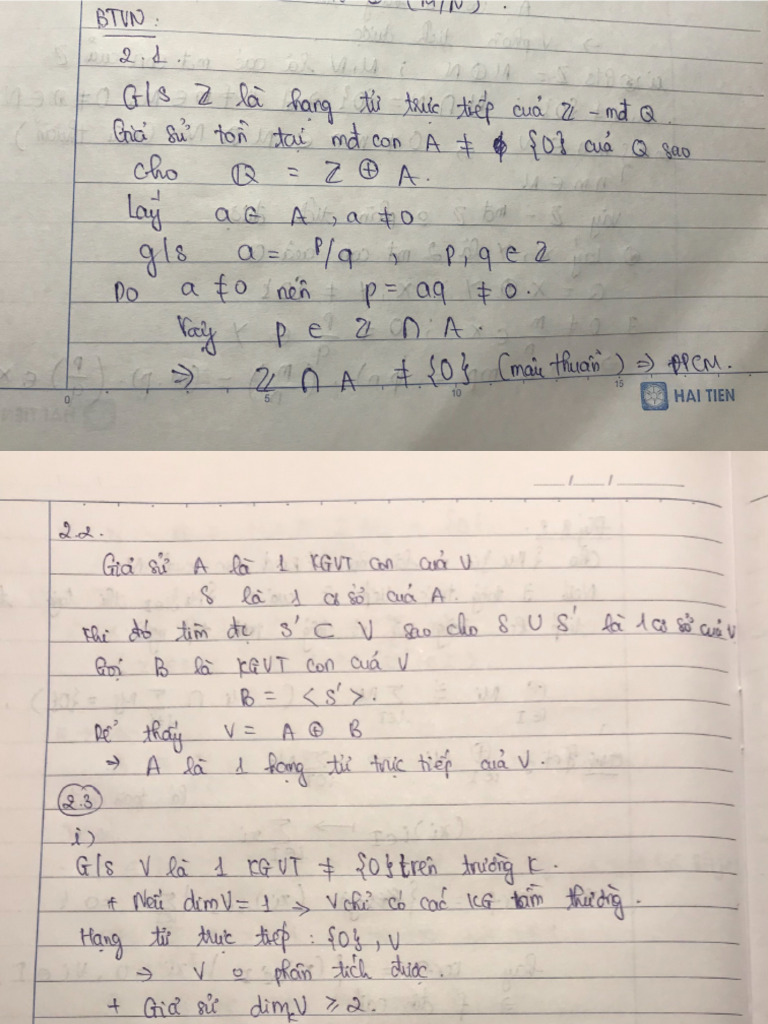 (M/N).
BTVN:
2.1.
G/S Z là hạng tử trực tiếp của Z - mđ Q.
Giả sử tồn tại mđ con A ≠ {0} của Q sao
cho Q = Z ⊕ A.
Lấy a ∈ A, a ≠ 0
g/s a = p/q, p, q ∈ Z
Do a ≠ 0 nên p = aq ≠ 0.
Vậy p ∈ Z ∩ A.
⇒ Z ∩ A ≠ {0} (mâu thuẫn) ⇒ ĐPCM.
0 5 10 15
HAI TIEN
__/__/____
2.2.
Giả sử A là 1 KGVT con của V
S là 1 cơ sở của A.
Khi đó tìm đc S' ⊂ V sao cho S ∪ S' là 1 cơ sở của V
Gọi B là KGVT con của V
B = <S'>.
Dễ thấy V = A ⊕ B
→ A là 1 hạng tử trực tiếp của V.
2.3
i)
G/S V là 1 KGVT ≠ {0} trên trường K.
+ Nếu dimV = 1 → V chỉ có các KG tầm thường.
Hạng tử trực tiếp: {0}, V
→ V phân tích được.
+ Giả sử dim_K V ≥ 2.